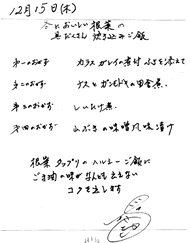 12月15日(木)
冬においしい根菜の
具だくさん 炊き込みご飯
第一のおかず カラスガレイの煮付 ふきを添えて
第二のおかず ナスとガンモドキの田舎煮
第三のおかず しいたけ煮
第四のおかず みぶきの味噌風味漬け
根菜タップリのヘルシーご飯に
ごま油の味がなんとも言えない
コクを出します